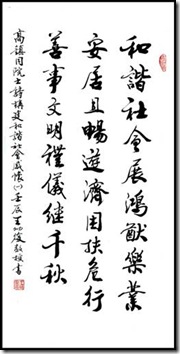 和諧社会展鴻猷樂業
安居且暢遊濟困扶危行
善事文明禮儀继千秋
高鎮同院士詩構建和諧社会感懷(一)壬辰王幼敬書